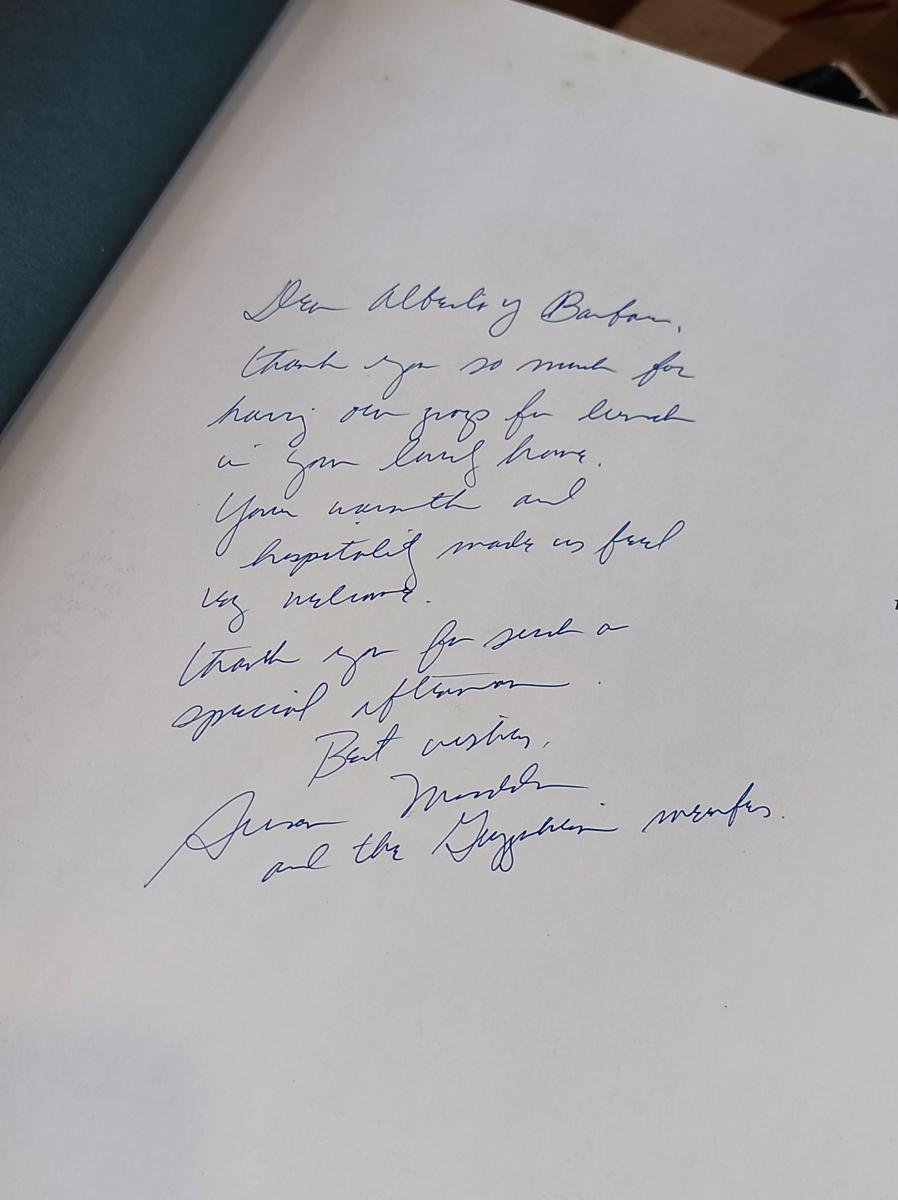 Dear Alberto y Barbara,
thank you so much for
having our group for lunch
in your lovely home.
Your warmth and
hospitality made us feel
very welcome.
thank you for such a
special afternoon.
Best wishes,
Susan Madden
and the Guggenheim members.